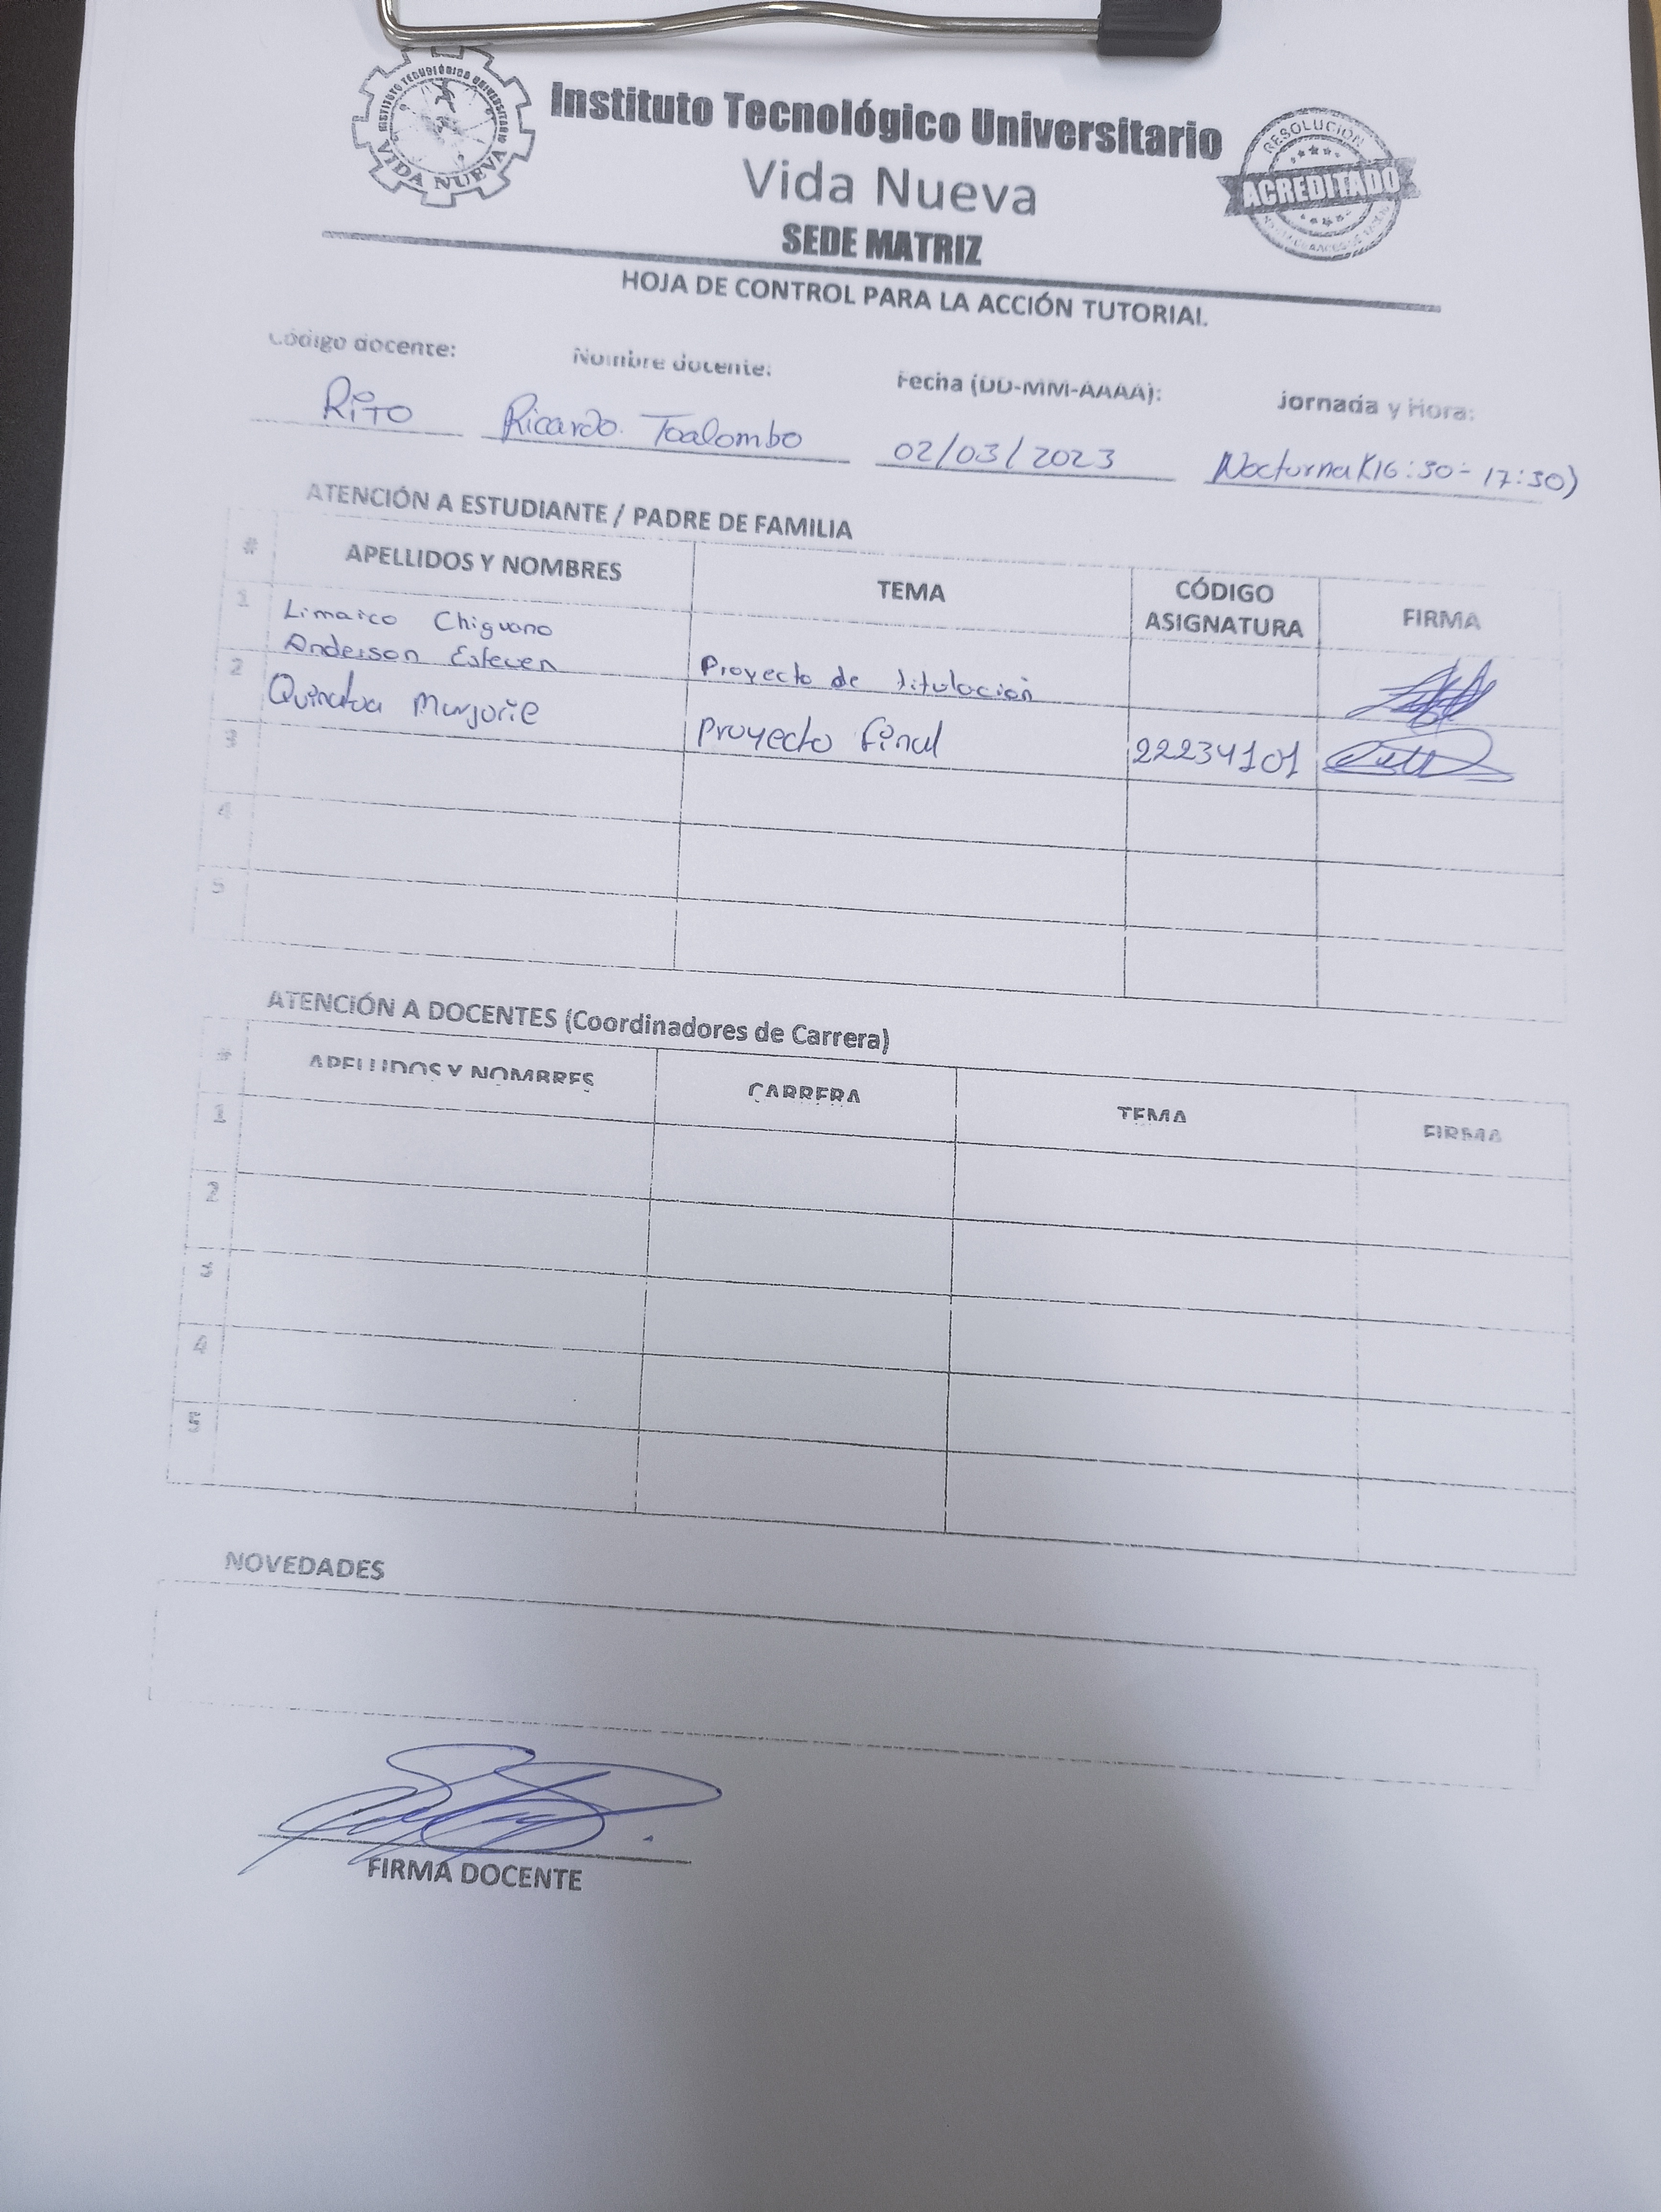 INSTITUTO TECNOLÓGICO UNIVERSITARIO
VIDA NUEVA
Instituto Tecnológico Universitario
Vida Nueva
SEDE MATRIZ
RESOLUCIÓN
ACREDITADO
HOJA DE CONTROL PARA LA ACCIÓN TUTORIAL
Código docente: Nombre docente: Fecha (DD-MM-AAAA): Jornada y Hora:
RiTO Ricardo Toalombo 02/03/2023 Nocturna (16:30-17:30)
ATENCIÓN A ESTUDIANTE / PADRE DE FAMILIA
# APELLIDOS Y NOMBRES TEMA CÓDIGO ASIGNATURA FIRMA
1 Limaico Chiguano
Anderson Esteven Proyecto de titulación
2 Marjorie Proyecto final 22234101
3
4
5
ATENCIÓN A DOCENTES (Coordinadores de Carrera)
# APELLIDOS Y NOMBRES CARRERA TEMA FIRMA
1
2
3
4
5
NOVEDADES
FIRMA DOCENTE